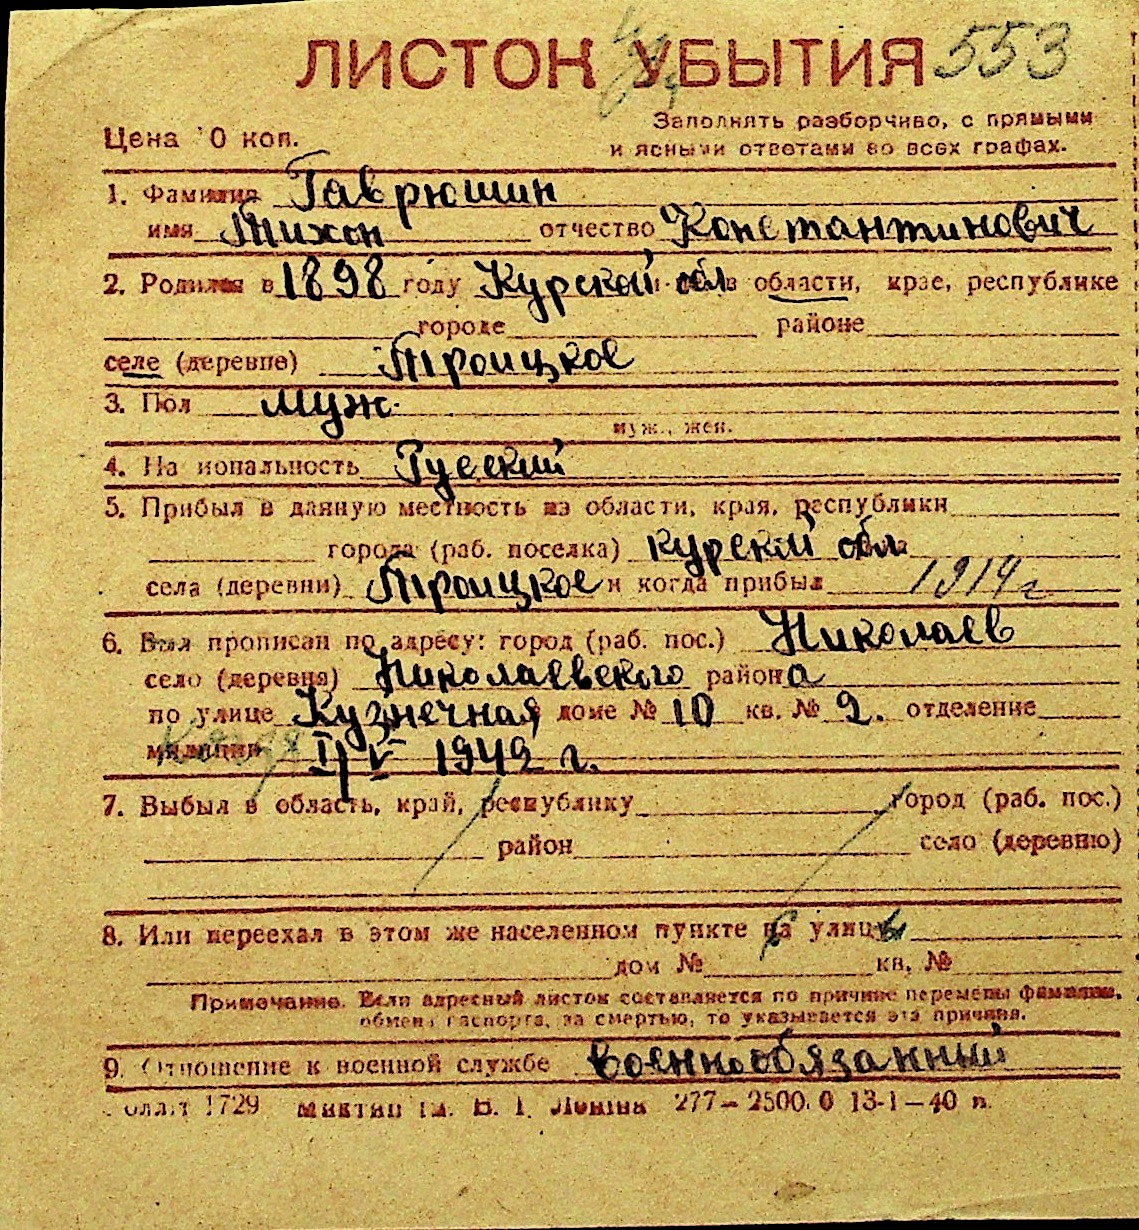 ЛИСТОК УБЫТИЯ 553
Цена 10 коп.
Заполнять разборчиво, с прямыми
и ясными ответами во всех графах.
1. Фамилия Гаврюшин
имя Тихон отчество Константинович
2. Родился в 1898 году Курской обл в области, крае, республике
городе районе
селе (деревне) Троицкое
3. Пол муж.
муж., жен.
4. Национальность Русский
5. Прибыл в данную местность из области, края, республики
города (раб. поселка) Курской обл
села (деревни) Троицкое и когда прибыл 1914 г
6. Был прописан по адресу: город (раб. пос.) Николаев
село (деревня) Николаевского района
по улице Кузнечная доме № 10 кв. № 2. отделение
милиции 1942 г.
7. Выбыл в область, край, республику город (раб. пос.)
район село (деревню)
8. Или переехал в этом же населенном пункте на улицу
дом № кв. №
Примечание. Если адресный листок составляется по причине перемены фамилии,
обмена паспорта, за смертью, то указывается эта причина.
9. Отношение к военной службе военнообязанный
1729 им. В. И. Ленина 277—2500.0 13-1—40 п.